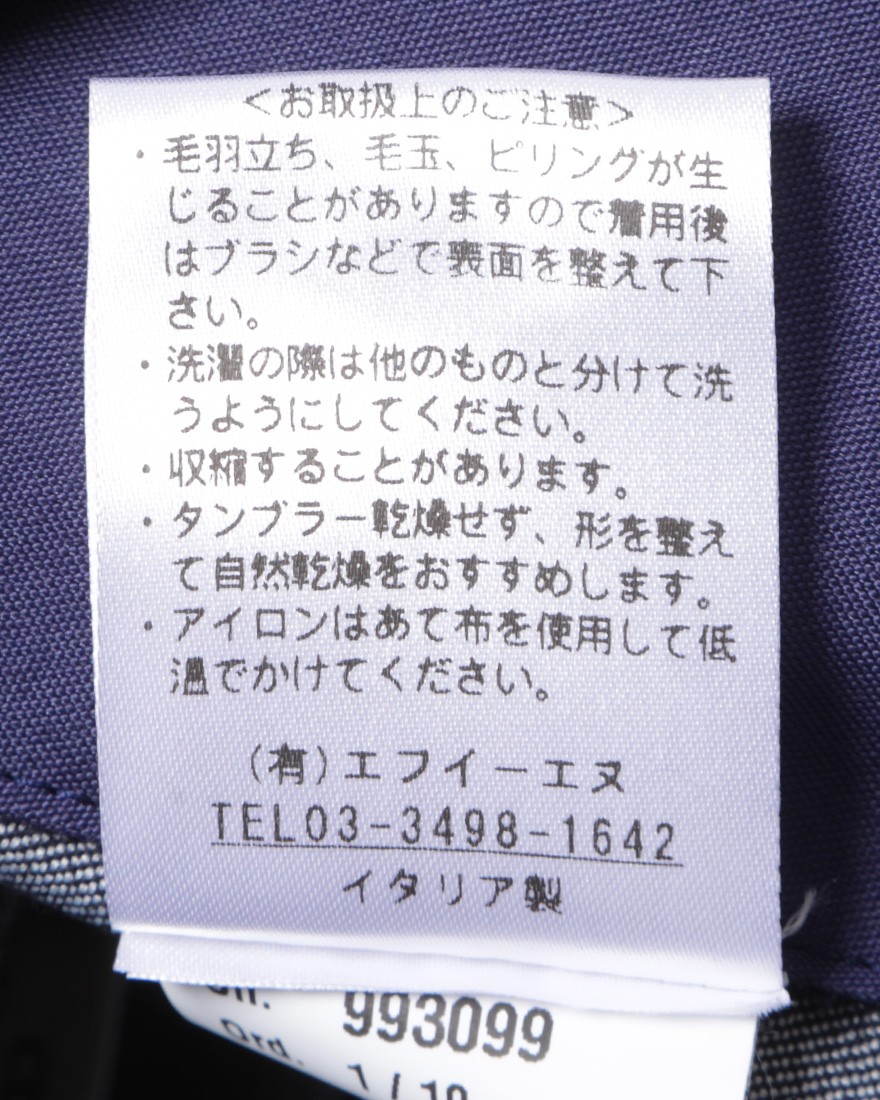 <お取扱上のご注意>
・毛羽立ち、毛玉、ピリングが生
じることがありますので着用後
はブラシなどで表面を整えて下
さい。
・洗濯の際は他のものと分けて洗
うようにしてください。
・収縮することがあります。
・タンブラー乾燥せず、形を整え
て自然乾燥をおすすめします。
・アイロンはあて布を使用して低
温でかけてください。
(有)エフイーエヌ
TEL03-3498-1642
イタリア製
993099
Ord. 1/10